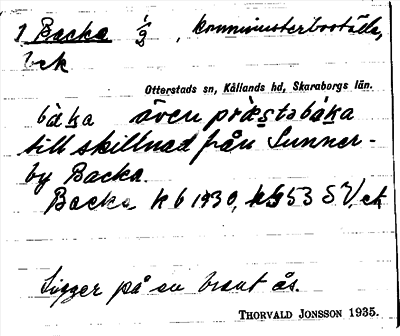 1 Backa 1/2, komministerboställe,
Bek
Otterstads sn, Kållands hd, Skaraborgs län.
bàka även præstəbàka
till skillnad från Sunner-
by Backa.
Backa kb 1930, SV, ek
Ligger på en brant ås.
THORVALD JONSSON 1935.